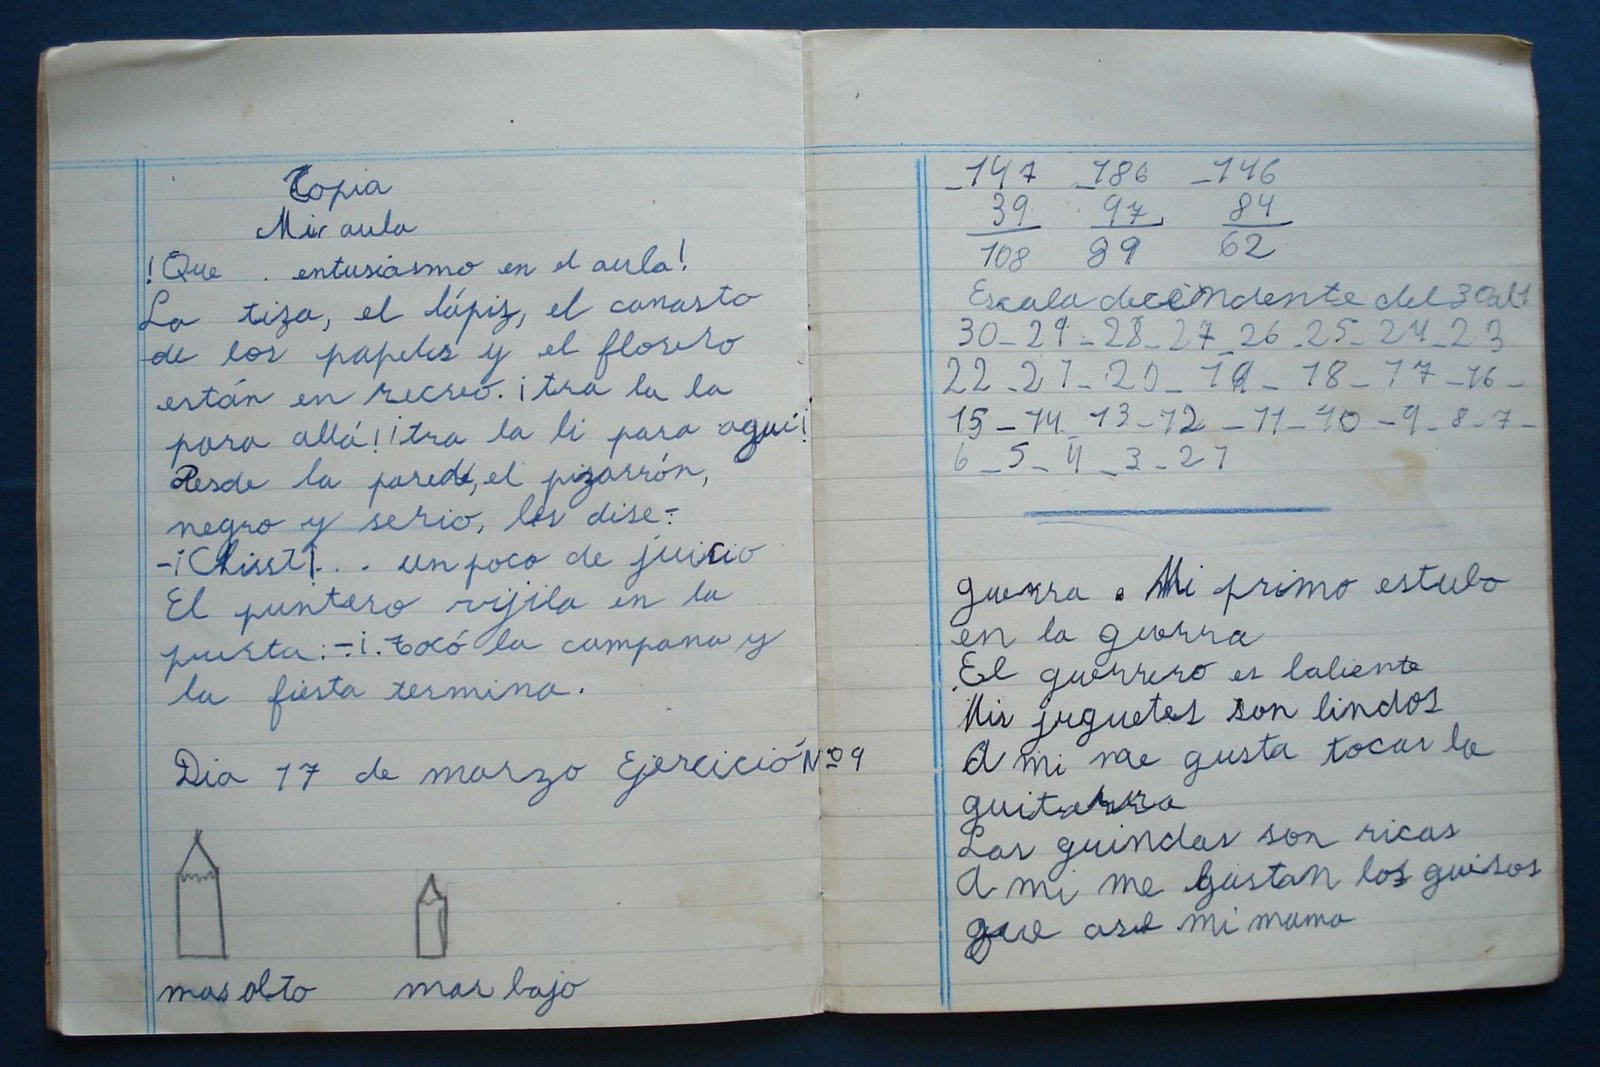 Copia
Mi aula
!Que . entusiasmo en el aula!
La tiza, el lápiz, el canasto
de los papeles y el florero
están en recreo. ¡tra la la
para allá! ¡tra la li para aquí!
Desde la pared, el pizarrón,
negro y serio, les dise-
-¡Chisst!... un poco de juicio
El puntero vijila en la
puerta:-¡. Tocó la campana y
la fiesta termina.
Dia 17 de marzo Ejercició Nº 9
mas alto mas bajo
-147 -186 -146
39 97 84
108 89 62
Escala decendente del 30 al 1
30-29-28-27-26-25-24-23
22-21-20-19-18-17-16-
15-14-13-12-11-10-9-8-7-
6-5-4-3-21
guerra . Mi primo estubo
en la guerra
El guerrero es baliente
Mis juguetes son lindos
A mi me gusta tocar la
guitarra
Las guindas son ricas
A mi me gustan los guisos
que ase mi mama